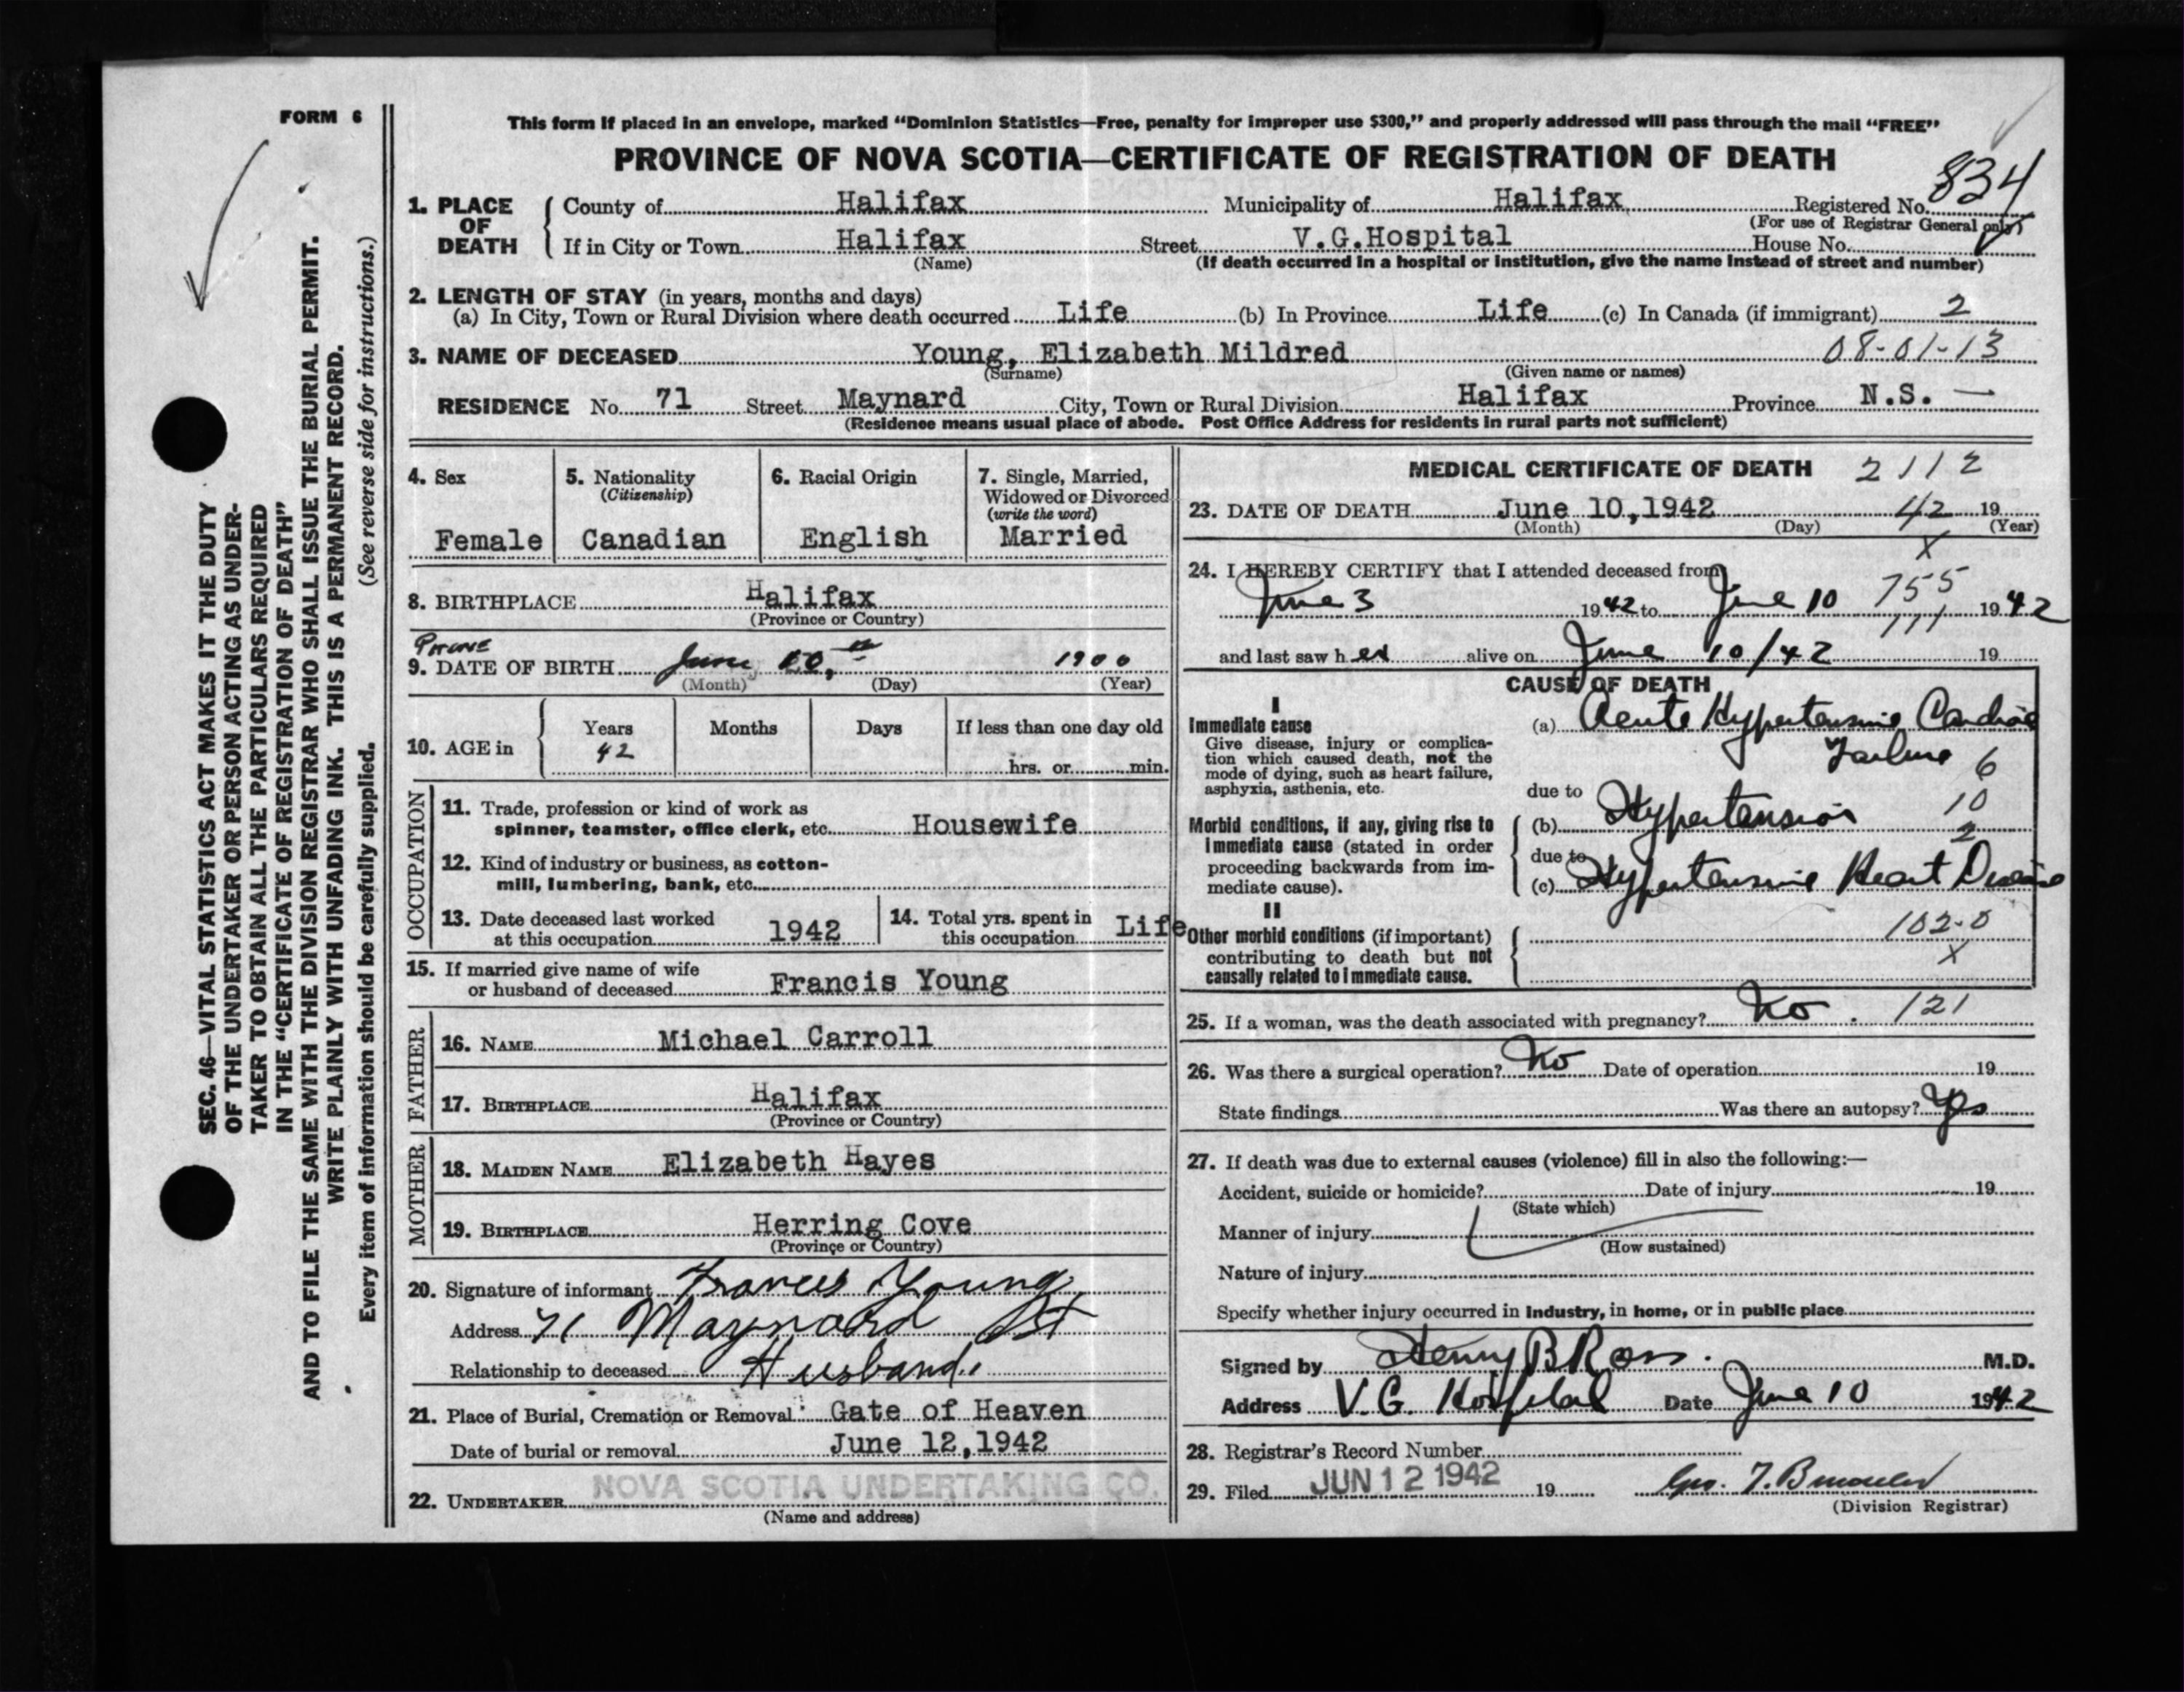 FORM 6
This form if placed in an envelope, marked "Dominion Statistics—Free, penalty for improper use $300," and properly addressed will pass through the mail "FREE"
PROVINCE OF NOVA SCOTIA—CERTIFICATE OF REGISTRATION OF DEATH
834
1. PLACE OF DEATH County of Halifax Municipality of Halifax Registered No.
(For use of Registrar General only)
If in City or Town Halifax Street V.G.Hospital House No.
(Name) (If death occurred in a hospital or institution, give the name instead of street and number)
2. LENGTH OF STAY (in years, months and days)
(a) In City, Town or Rural Division where death occurred Life (b) In Province Life (c) In Canada (if immigrant) 2
3. NAME OF DECEASED Young, Elizabeth Mildred 08-01-13
(Surname) (Given name or names)
RESIDENCE No. 71 Street Maynard City, Town or Rural Division Halifax Province N.S. —
(Residence means usual place of abode. Post Office Address for residents in rural parts not sufficient)
4. Sex
Female
5. Nationality
(Citizenship)
Canadian
6. Racial Origin
English
7. Single, Married,
Widowed or Divorced
(write the word)
Married
8. BIRTHPLACE Halifax
(Province or Country)
9. DATE OF BIRTH 1900
(Month) (Day) (Year)
10. AGE in Years Months Days If less than one day old
42 hrs. or min.
OCCUPATION
11. Trade, profession or kind of work as
spinner, teamster, office clerk, etc. Housewife
12. Kind of industry or business, as cotton-
mill, lumbering, bank, etc.
13. Date deceased last worked
at this occupation 1942
14. Total yrs. spent in
this occupation Life
15. If married give name of wife
or husband of deceased Francis Young
FATHER
16. NAME Michael Carroll
17. BIRTHPLACE Halifax
(Province or Country)
MOTHER
18. MAIDEN NAME Elizabeth Hayes
19. BIRTHPLACE Herring Cove
(Province or Country)
20. Signature of informant Francis Young
Address 71 Maynard St
Relationship to deceased Husband.
21. Place of Burial, Cremation or Removal Gate of Heaven
Date of burial or removal June 12,1942
22. UNDERTAKER NOVA SCOTIA UNDERTAKING CO.
(Name and address)
MEDICAL CERTIFICATE OF DEATH 2112
23. DATE OF DEATH June 10,1942 42 19
(Month) (Day) (Year)
X
24. I HEREBY CERTIFY that I attended deceased from
June 3 1942 to June 10 755 1942
111
and last saw her alive on June 10/42 19
CAUSE OF DEATH
I
Immediate cause
Give disease, injury or complica-
tion which caused death, not the
mode of dying, such as heart failure,
asphyxia, asthenia, etc.
(a) Acute Hypertensive Cardiac
Failure 6
due to
10
Morbid conditions, if any, giving rise to
immediate cause (stated in order
proceeding backwards from im-
mediate cause).
(b) Hypertension
2
due to
(c) Hypertensive Heart Disease
II
Other morbid conditions (if important)
contributing to death but not
causally related to immediate cause.
102-0
X
25. If a woman, was the death associated with pregnancy? No. 121
26. Was there a surgical operation? No Date of operation 19
State findings Was there an autopsy? Yes
27. If death was due to external causes (violence) fill in also the following:—
Accident, suicide or homicide? Date of injury 19
(State which)
Manner of injury
(How sustained)
Nature of injury
Specify whether injury occurred in industry, in home, or in public place
Signed by Henry B Ross. M.D.
Address V.G. Hospital Date June 10 1942
28. Registrar's Record Number
29. Filed JUN 12 1942 19
(Division Registrar)
SEC. 46—VITAL STATISTICS ACT MAKES IT THE DUTY
OF THE UNDERTAKER OR PERSON ACTING AS UNDER-
TAKER TO OBTAIN ALL THE PARTICULARS REQUIRED
IN THE "CERTIFICATE OF REGISTRATION OF DEATH"
AND TO FILE THE SAME WITH THE DIVISION REGISTRAR WHO SHALL ISSUE THE BURIAL PERMIT.
WRITE PLAINLY WITH UNFADING INK. THIS IS A PERMANENT RECORD.
Every item of information should be carefully supplied. (See reverse side for instructions.)